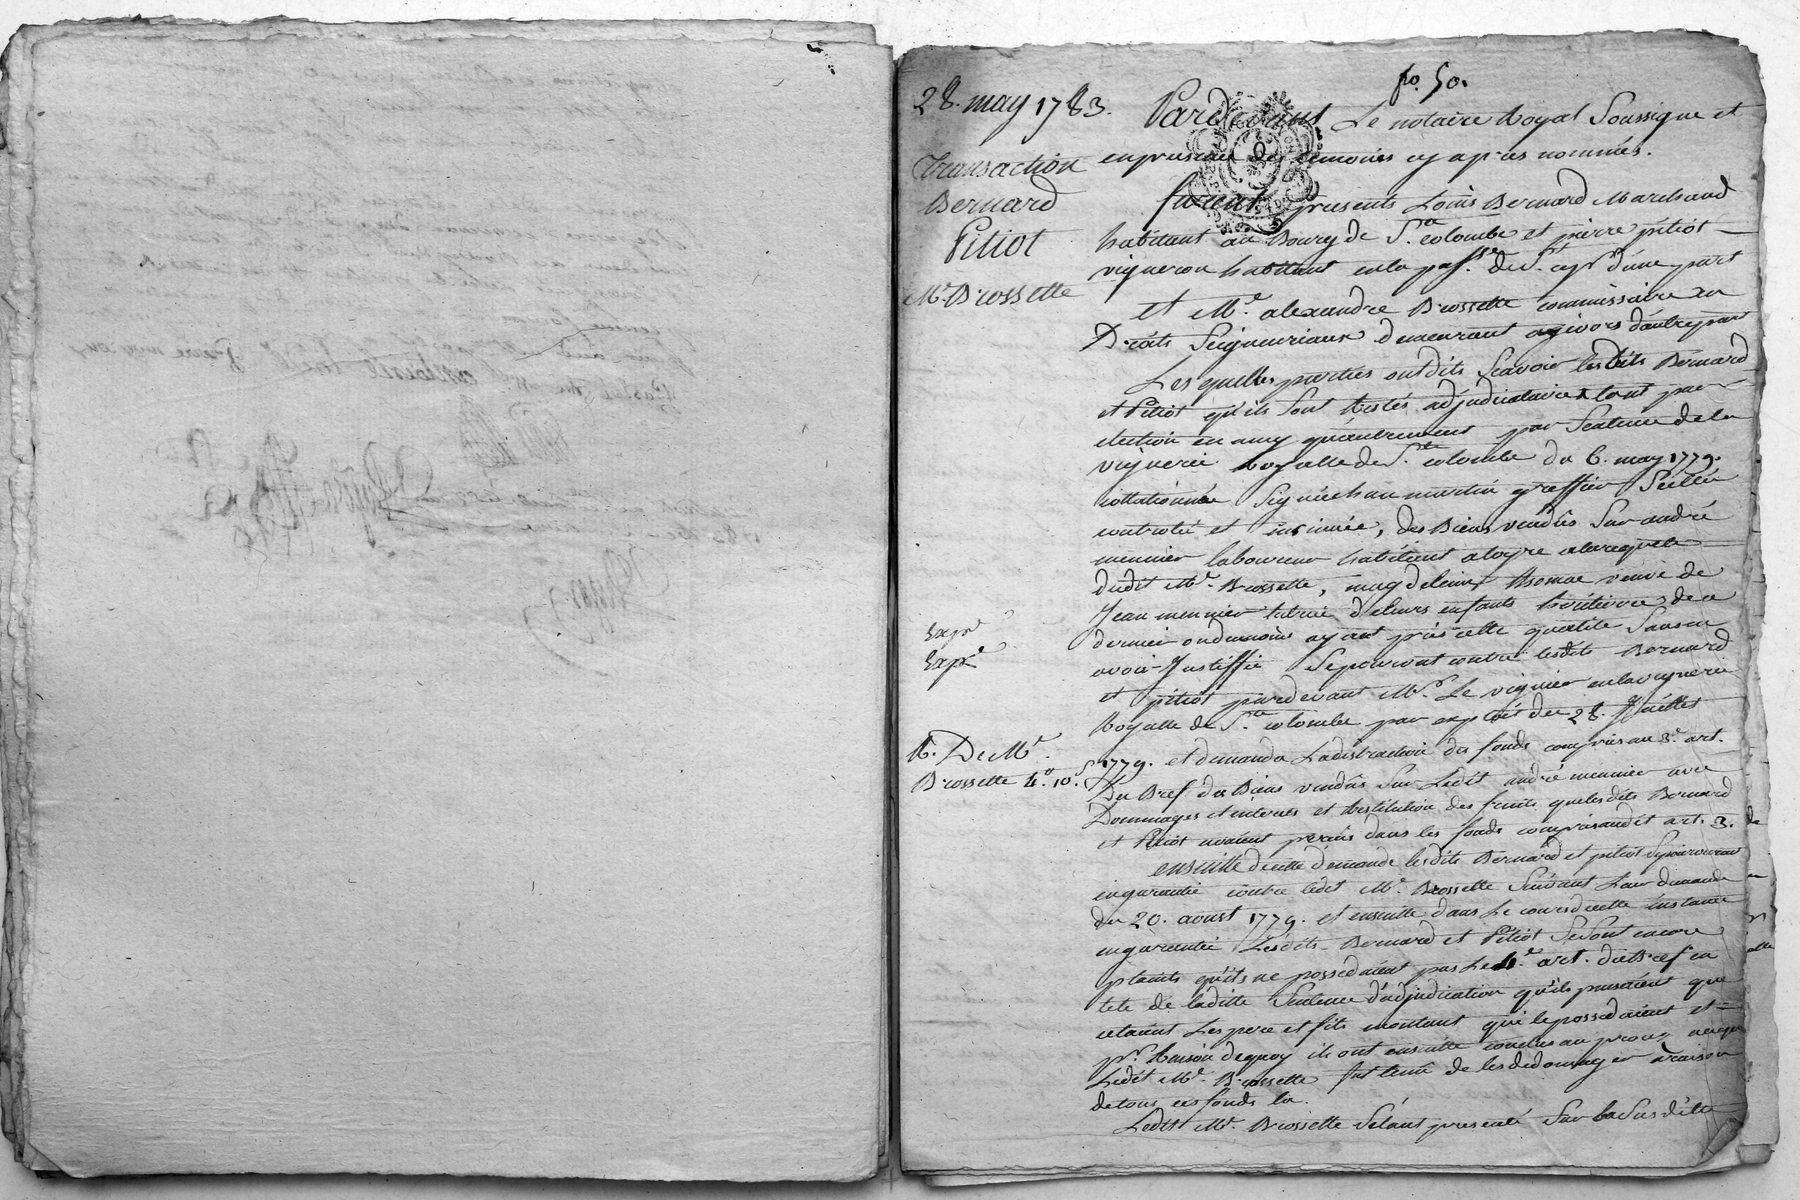 fo. 50.
28. may 1783.
Transaction
Bernard
Pitiot
Me. Brossette
Expé
Expé
R. De Me.
Brossette 4.# 10.s
Pardevant Le notaire Royal Soussigne et
en presence des temoins cy apres nommés.
furent presents Loüis Bernard Marchand
habitant au Bourg de Ste. colombe et pierre pitiot
vigneron habitant en la pasre de St. cyr d'une part
et Me. alexandre Brossette commissaire en
Droits Seigneuriaux demeurant a givors d'autre part
Les quelles parties ont dits Scavoir lesdits Bernard
et Pitiot qu'ils Sont Restés adjudicataires tant par
election en amy qu'autrement par Sentence de la
viguerie Royalle de Ste. colombe du 6. may 1779.
collationnée Signée chanmartin greffier Scellée
controlée et insinuée, des Biens vendus Sur andré
meunier laboureur habitant a loyre a la requete
dudit Me. Brossette, magdeleine thomas veuve de
Jean meunier tutrice de leurs enfants heritiere de ce
dernier ou du moins ayant pris cette qualité Sans en
avoir Justiffié Se pourvut contre lesdits Bernard
et pitiot pardevant Mr. Le viguier en la viguerie
Royalle de Ste. colombe par exploit du 28. Juillet
1779. et demanda La distraction des fonds compris au 3e. art.
Du Bref des Biens vendus Sur Ledit andré meunier avec
Dommages et interets et Restitution des fruits que lesdits Bernard
et Pitiot avoient perçus dans les fonds compris audit art. 3.
ensuitte de cette demande lesdits Bernard et pitiot Se pourvurent
en garantie contre ledit Me. Brossette Suivant Leur demande
du 20. aoust 1779. et ensuitte dans Le cours de cette instance
en garantie Lesdits Bernard et Pitiot Se Sont encore
plaints qu'ils ne possedoient pas Le 4e. art. du Bref en
tete de laditte Sentence d'adjudication qu'ils pensoient que
c'étaient Les pere et fils montant qui le possedoient et
pr. Raison de quoy ils ont ensuitte conclus au procès a ce que
Ledit Me. Brossette fut tenu de les dedomager a raison
de tous ces fonds la.
Ledit Me. Brossette S'étant presenté Sur la Susditte